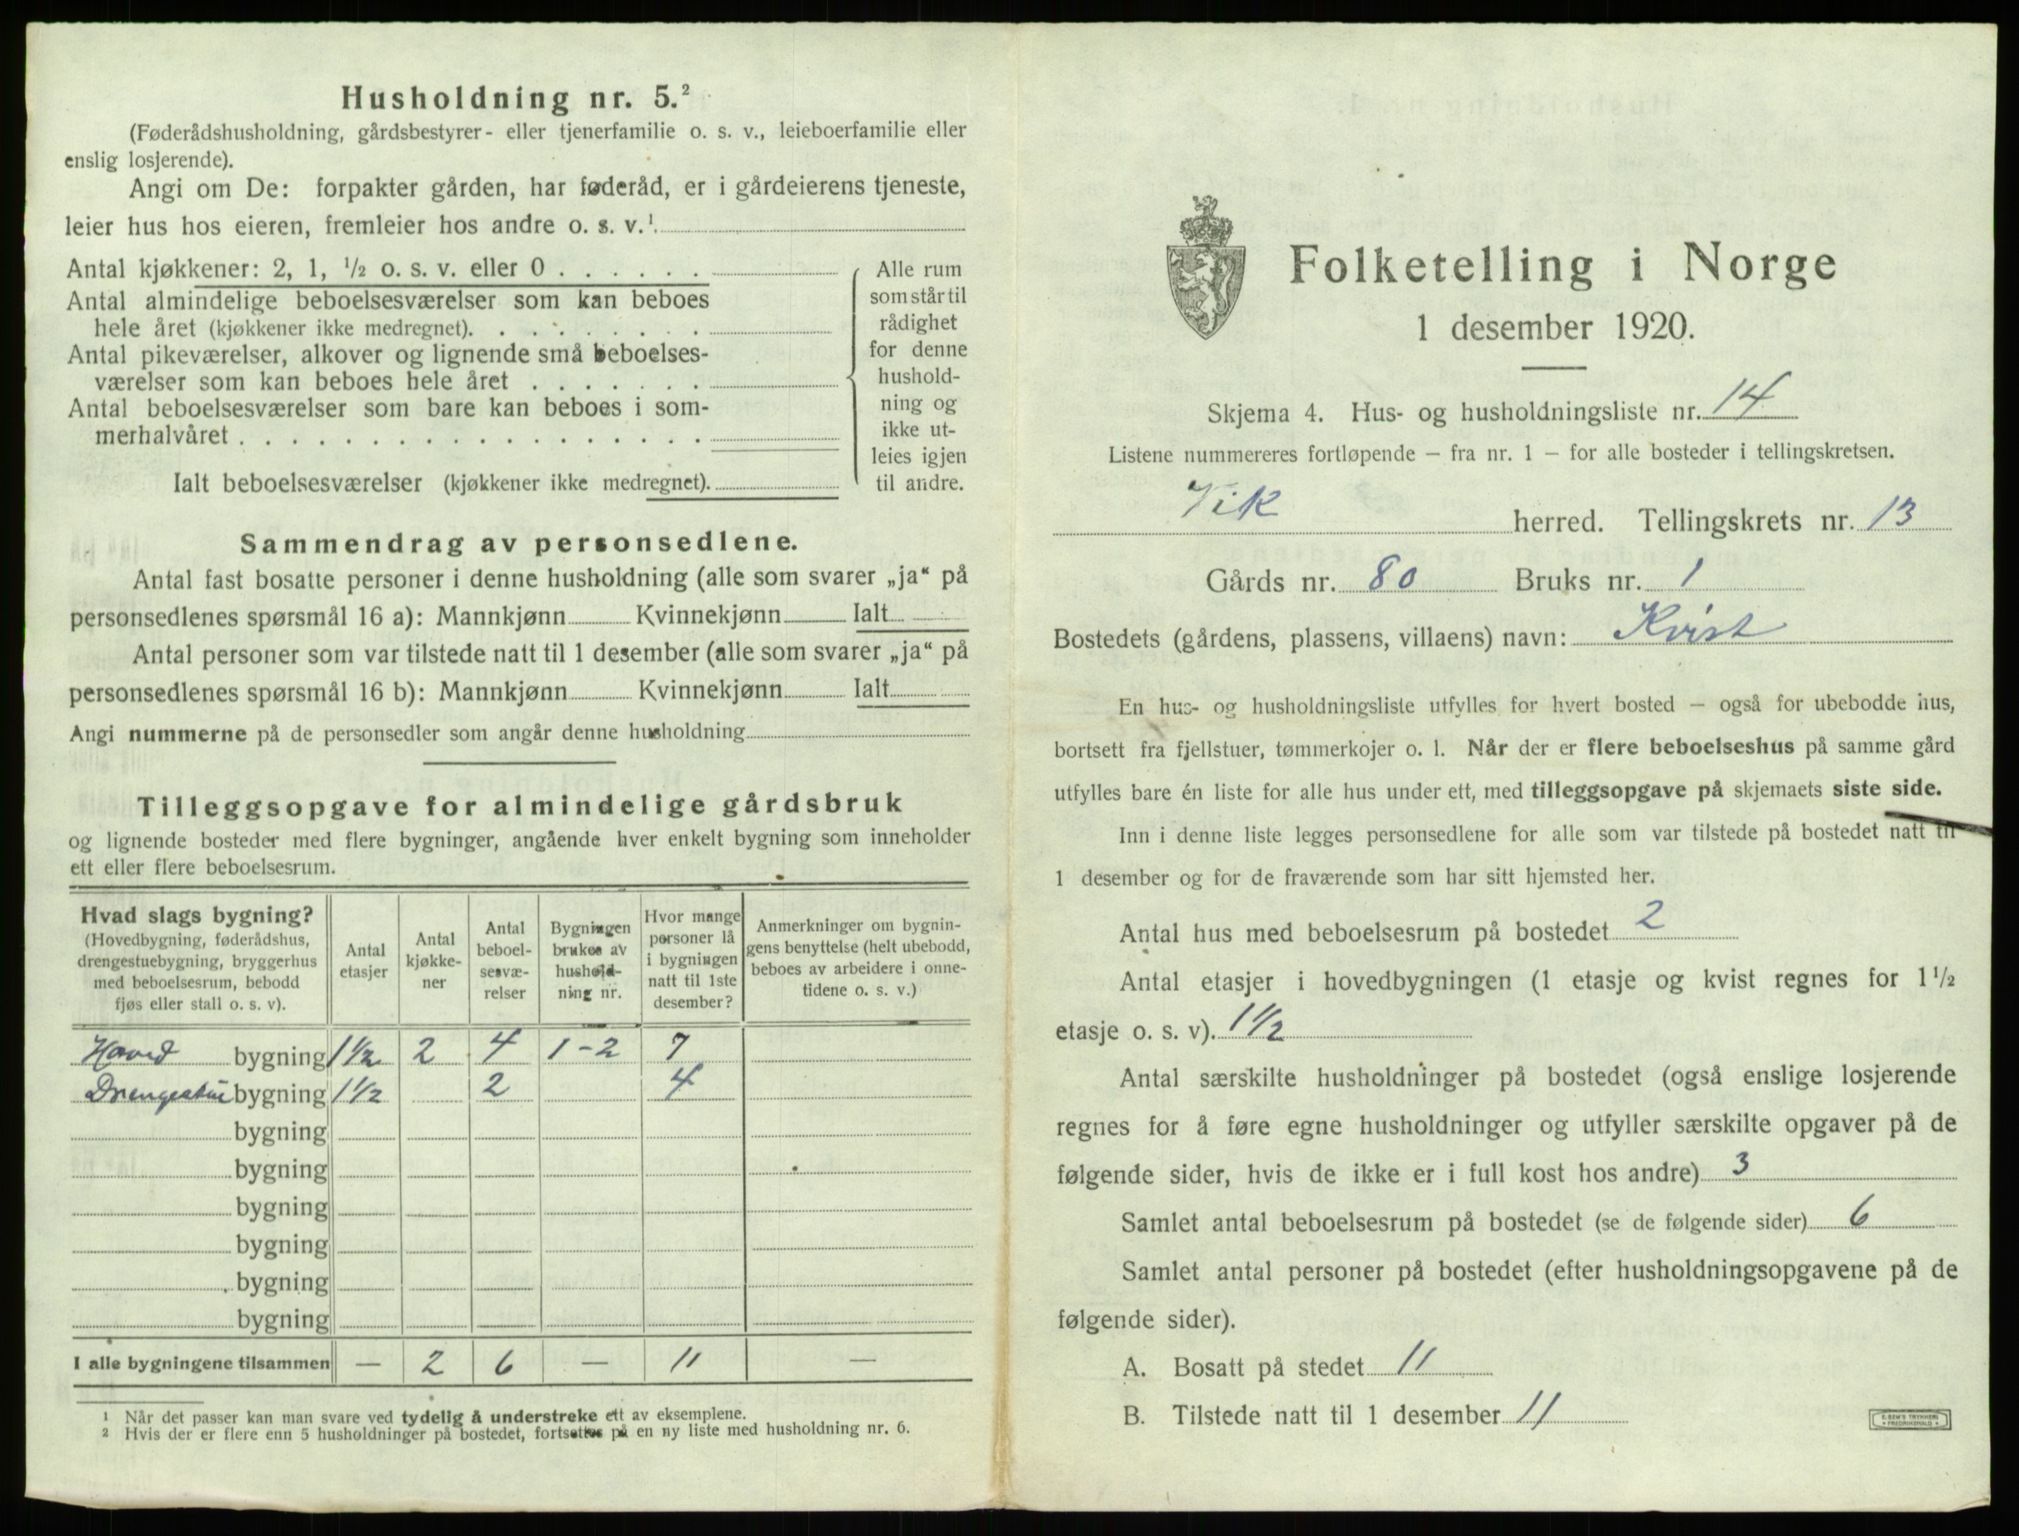 Husholdning nr. 5.²
(Føderådshusholdning, gårdsbestyrer- eller tjenerfamilie o. s. v., leieboerfamilie eller
enslig losjerende).
Angi om De: forpakter gården, har føderåd, er i gårdeierens tjeneste,
leier hus hos eieren, fremleier hos andre o. s. v.¹
Antal kjøkkener: 2, 1, ½ o. s. v. eller 0 . . . . . .
Antal almindelige beboelsesværelser som kan beboes
hele året (kjøkkener ikke medregnet). . . . . . . . .
Antal pikeværelser, alkover og lignende små beboelses-
værelser som kan beboes hele året . . . . . . .
Antal beboelsesværelser som bare kan beboes i som-
merhalvåret . . . . . . . . . . . . . . . . . .
Ialt beboelsesværelser (kjøkkener ikke medregnet).
Alle rum
som står til
rådighet
for denne
hushold-
ning og
ikke ut-
leies igjen
til andre.
Sammendrag av personsedlene.
Antal fast bosatte personer i denne husholdning (alle som svarer „ja“ på
personsedlenes spørsmål 16 a): Mannkjønn Kvinnekjønn Ialt
Antal personer som var tilstede natt til 1 desember (alle som svarer „ja“ på
personsedlenes spørsmål 16 b): Mannkjønn Kvinnekjønn Ialt
Angi nummerne på de personsedler som angår denne husholdning
Tilleggsopgave for almindelige gårdsbruk
og lignende bosteder med flere bygninger, angående hver enkelt bygning som inneholder
ett eller flere beboelsesrum.
Hvad slags bygning?
(Hovedbygning, føderådshus,
drengestuebygning, bryggerhus
med beboelsesrum, bebodd
fjøs eller stall o. s. v).
Antal
etasjer
Antal
kjøkke-
ner
Antal
beboel-
sesvæ-
relser
Bygningen
brukes av
hushold-
ning nr.
Hvor mange
personer lå
i bygningen
natt til 1ste
desember?
Anmerkninger om bygnin-
gens benyttelse (helt ubebodd,
beboes av arbeidere i onne-
tidene o. s. v.)
Hoved bygning 1½ 2 4 1-2 7
Drengestue bygning 1½ 2 4
bygning
bygning
bygning
bygning
bygning
bygning
I alle bygningene tilsammen — 2 6 — 11 —
¹ Når det passer kan man svare ved tydelig å understreke ett av eksemplene.
² Hvis der er flere enn 5 husholdninger på bostedet, fortsettes på en ny liste med husholdning nr. 6.
Folketelling i Norge
1 desember 1920.
Skjema 4. Hus- og husholdningsliste nr. 14
Listene nummereres fortløpende – fra nr. 1 – for alle bosteder i tellingskretsen.
Vik herred. Tellingskrets nr. 13
Gårds nr. 80 Bruks nr. 1
Bostedets (gårdens, plassens, villaens) navn: Kvist
En hus- og husholdningsliste utfylles for hvert bosted – også for ubebodde hus,
bortsett fra fjellstuer, tømmerkojer o. l. Når der er flere beboelseshus på samme gård
utfylles bare én liste for alle hus under ett, med tilleggsopgave på skjemaets siste side.
Inn i denne liste legges personsedlene for alle som var tilstede på bostedet natt til
1 desember og for de fraværende som har sitt hjemsted her.
Antal hus med beboelsesrum på bostedet 2
Antal etasjer i hovedbygningen (1 etasje og kvist regnes for 1½
etasje o. s. v). 1½
Antal særskilte husholdninger på bostedet (også enslige losjerende
regnes for å føre egne husholdninger og utfyller særskilte opgaver på de
følgende sider, hvis de ikke er i full kost hos andre) 3
Samlet antal beboelsesrum på bostedet (se de følgende sider) 6
Samlet antal personer på bostedet (efter husholdningsopgavene på de
følgende sider).
A. Bosatt på stedet 11
B. Tilstede natt til 1 desember 11
E. SEM'S TRYKKERI
FREDRIKSHALD